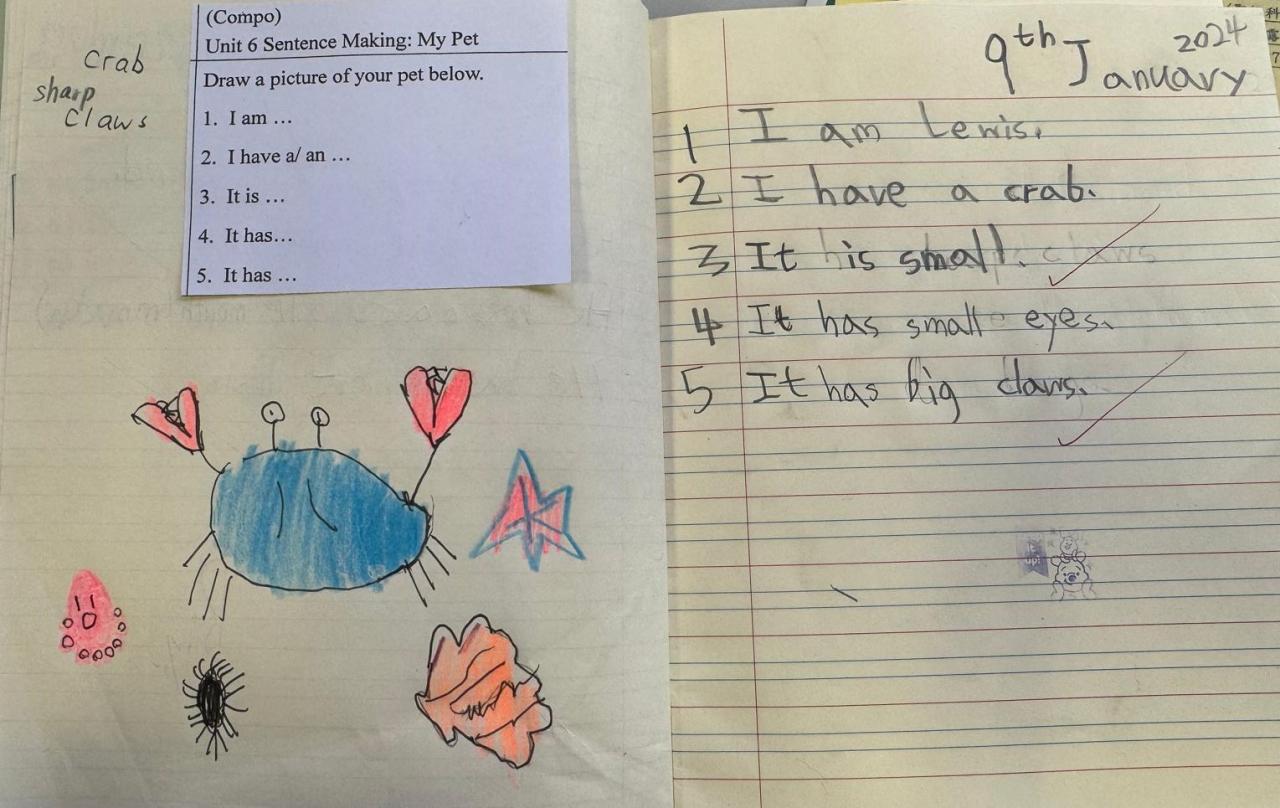 Crab
sharp
Claws
(Compo)
Unit 6 Sentence Making: My Pet
Draw a picture of your pet below.
1. I am …
2. I have a/ an …
3. It is …
4. It has…
5. It has …
9th January 2024
1 I am Lewis.
2 I have a crab.
3 It is small.
4 It has small eyes.
5 It has big claws.